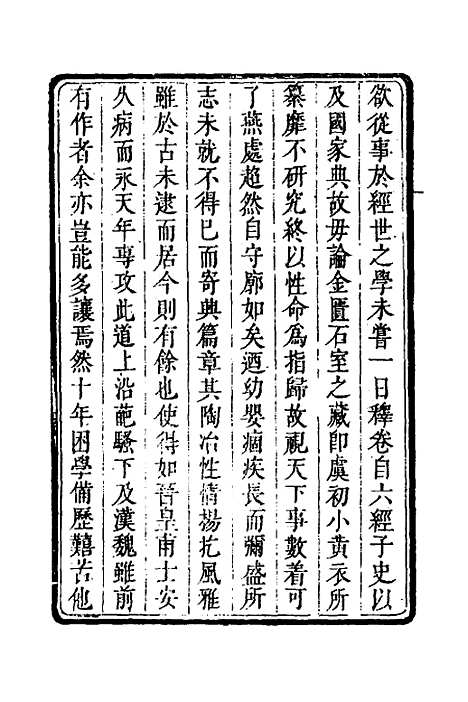 欲從事於經世之學未嘗一日釋卷自六經子史以
及國家典故毋論金匱石室之藏即虞初小黃衣所
纂靡不研究終以性命爲指歸故視天下事數着可
了燕處超然自守廓如矣迺幼嬰痼疾長而彌盛所
志未就不得已而寄興篇章其陶冶性情揚扢風雅
雖於古未逮而居今則有餘也使得如晉皇甫士安
久病而永天年專攻此道上沿葩騷下及漢魏雖前
有作者余亦豈能多讓焉然十年困學備歷艱苦他